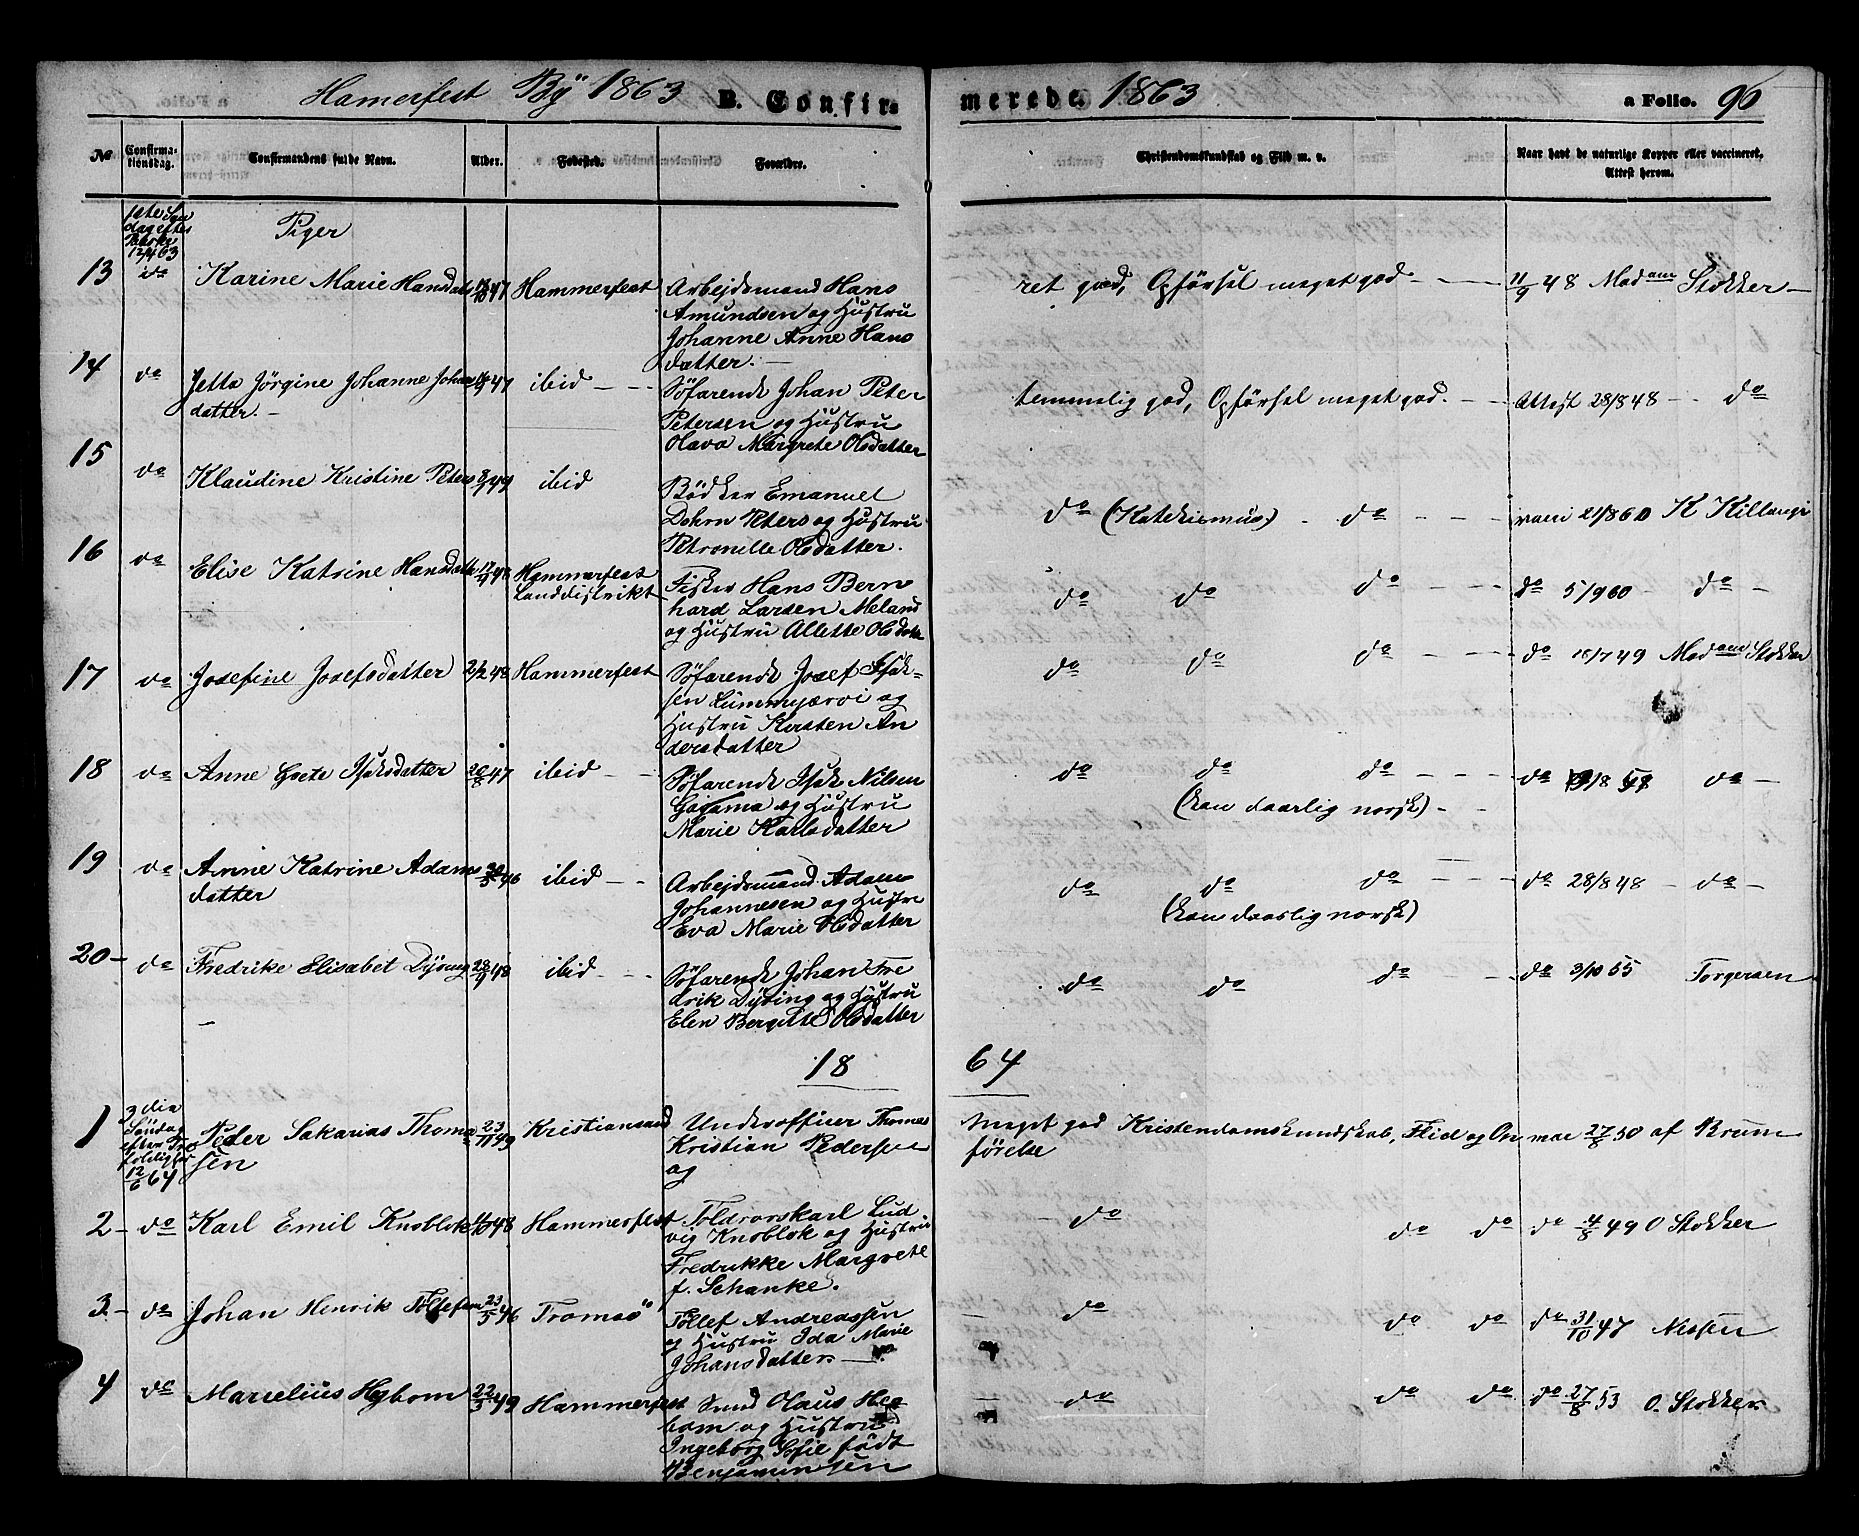 Hamerfest By 1863 B. Confir-
merede. 1863 a Folio. 96
No Confirma-
tionsdag. Confirmandens fulde Navn. Alder. Fødested. Forældre.
Christendomskundskab og Flid m. v. Naar havt de naturlige Kopper eller vaccineret,
Attest herom.
1ste Søn
dag efter
Paaske
12/4 63
Piger
13 do Karine Marie Hansdatter 47 Hammerfest Arbejdsmand Hans
Amundsen og Hustru
Johanne Anne Hans
datter.
ret god, Opførsel meget god 11/9 48 Madam Stokker
14 do Jetta Jørgine Johanne Johans 47 ibid Søfarende Johan Peter
datter.
Petersen og Hustru
Olava Margrete Olsdatter
temmelig god, Opførsel meget god. Attest 28/8 48 do
15 do Klaudine Kristine Peters 49 ibid Bødker Emanuel
Dohrn Peters og Hustru
Petronelle Olsdatter.
do (Katekismus) do vacc 21/8 60 K Killengr
16 do Elise Katrine Hansdatter 48 Hammerfest
Landdistrikt
Fisker Hans Bern
hard Larsen Meland
og Hustru Allette Olsdatter
do do do do 5/9 60 do
17 do Josefine Josefsdatter 2/2 48 Hammerfest Søfarende Josef Isak-
sen Lummijærvi og
Hustru Kirsten An
dersdatter
do do do do 18/7 49 Madam Stokker
18 do Anne Grete Isaksdatter 20/8 47 ibid Søfarende Isak Nilsen
Gagama og Hustru
Marie Karlsdatter
do do do do do
(kan daarlig norsk)
19 do Anne Katrine Adams 46 ibid Arbejdsmand Adam
datter
Johannesen og Hustru
Eva Marie Olsdatter
do do do do 28/8 48 do
(kan daarlig norsk)
20 do Fredrike Elisabet Dysing 28/9 48 ibid Søfarende Johan Fre
drik Dysing og Hustru
Elen Bergitte Olsdatter
do do do do 3/10 55 Torgersen
18 64
1 3die
Søndag
efter Tre
foldighed
12/6 64
Peder Sakarias Thoma
sen
23/11 49 Kristiansand Underofficer Thomas
Kristian Pedersen
og
Meget god Kristendomskundskab, Flid og Op
førelse
vac 27/8 50 af Bruun
2 do Karl Emil Knoblok 48 Hammerfest Toldrorskarl Lud
vig Knoblok og Hustru
Fredrikke Margrete
f. Schanke.
do do do do 4/8 49 O Stokker
3. do Johan Henrik Tollefsen 23/5 46 Tromsø Tollef Andreassen
og Hustru Ida Marie
Johansdatter.
do do do do 31/10 47 Nissen
4 do Marcelius Hegbom 22/3 49 Hammerfest Smed Olaus Heg
bom og Hustru
Ingeborg Sofie født
Benjaminsen
do do do do 27/8 53 O. Stokker